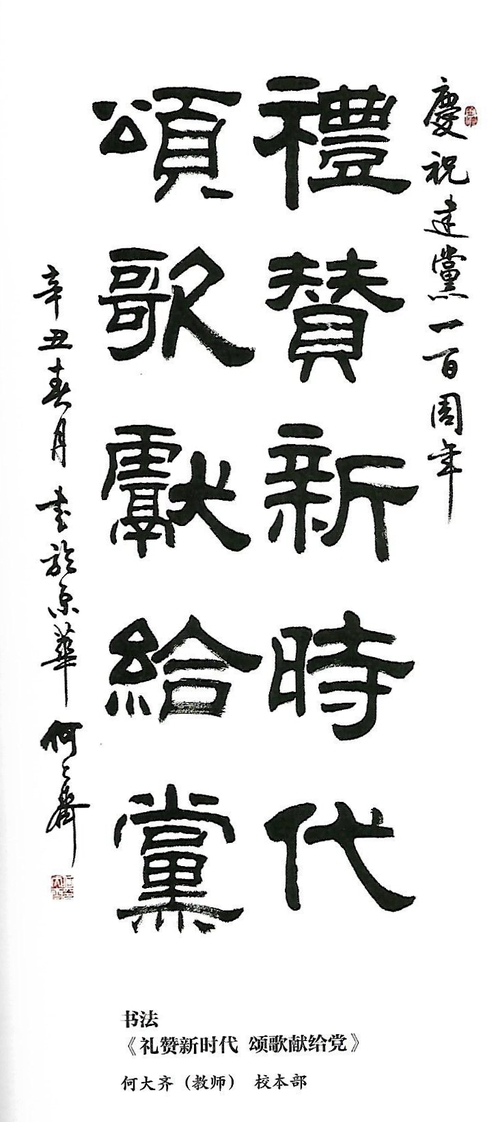 慶祝建黨一百周年
禮贊新時代
頌歌獻給黨
辛丑春月書於京華何大齊
书法
《礼赞新时代 颂歌献给党》
何大齐（教师） 校本部